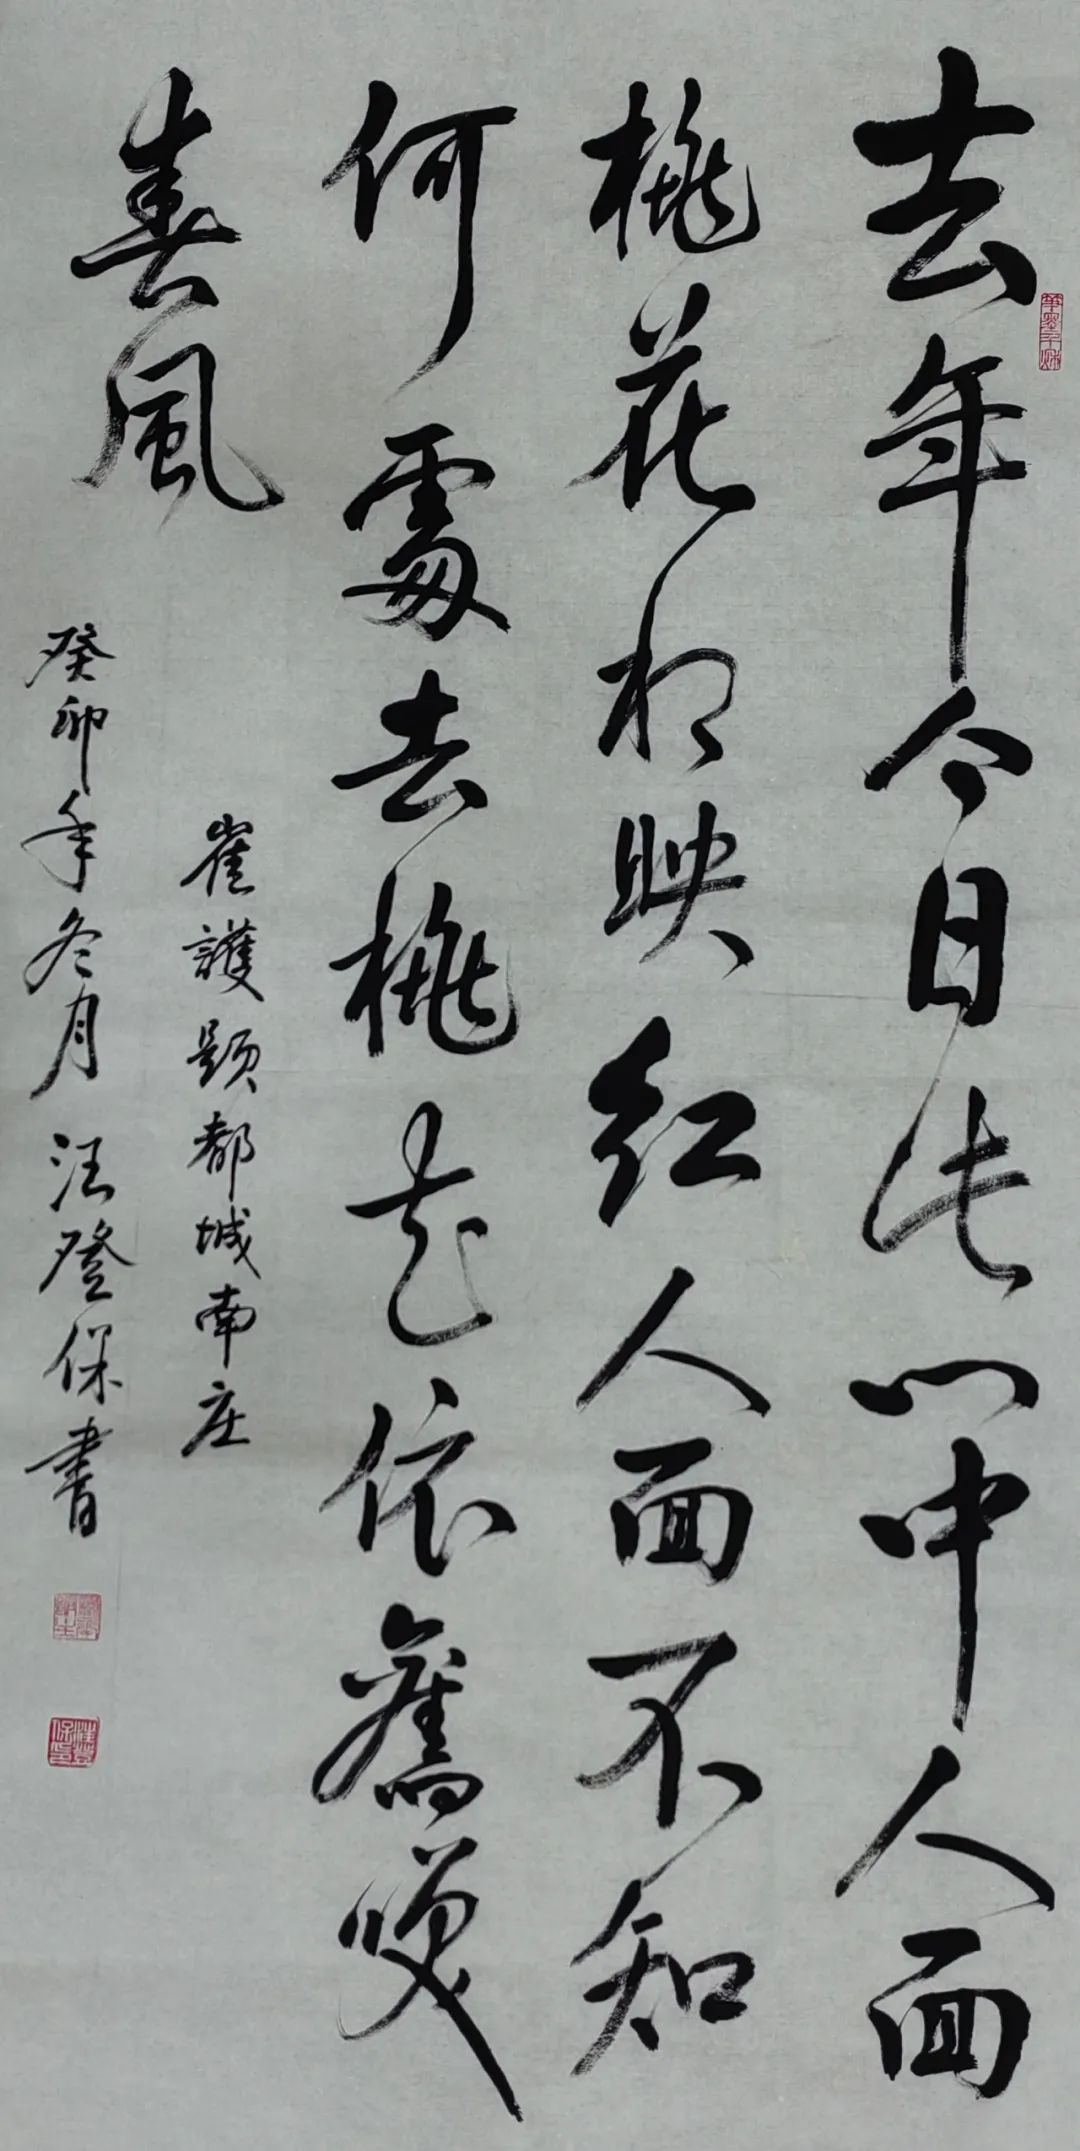 去年今日此門中人面
桃花相映紅人面不知
何處去桃花依舊笑
春風
崔護題都城南庄
癸卯年冬月汪登保書